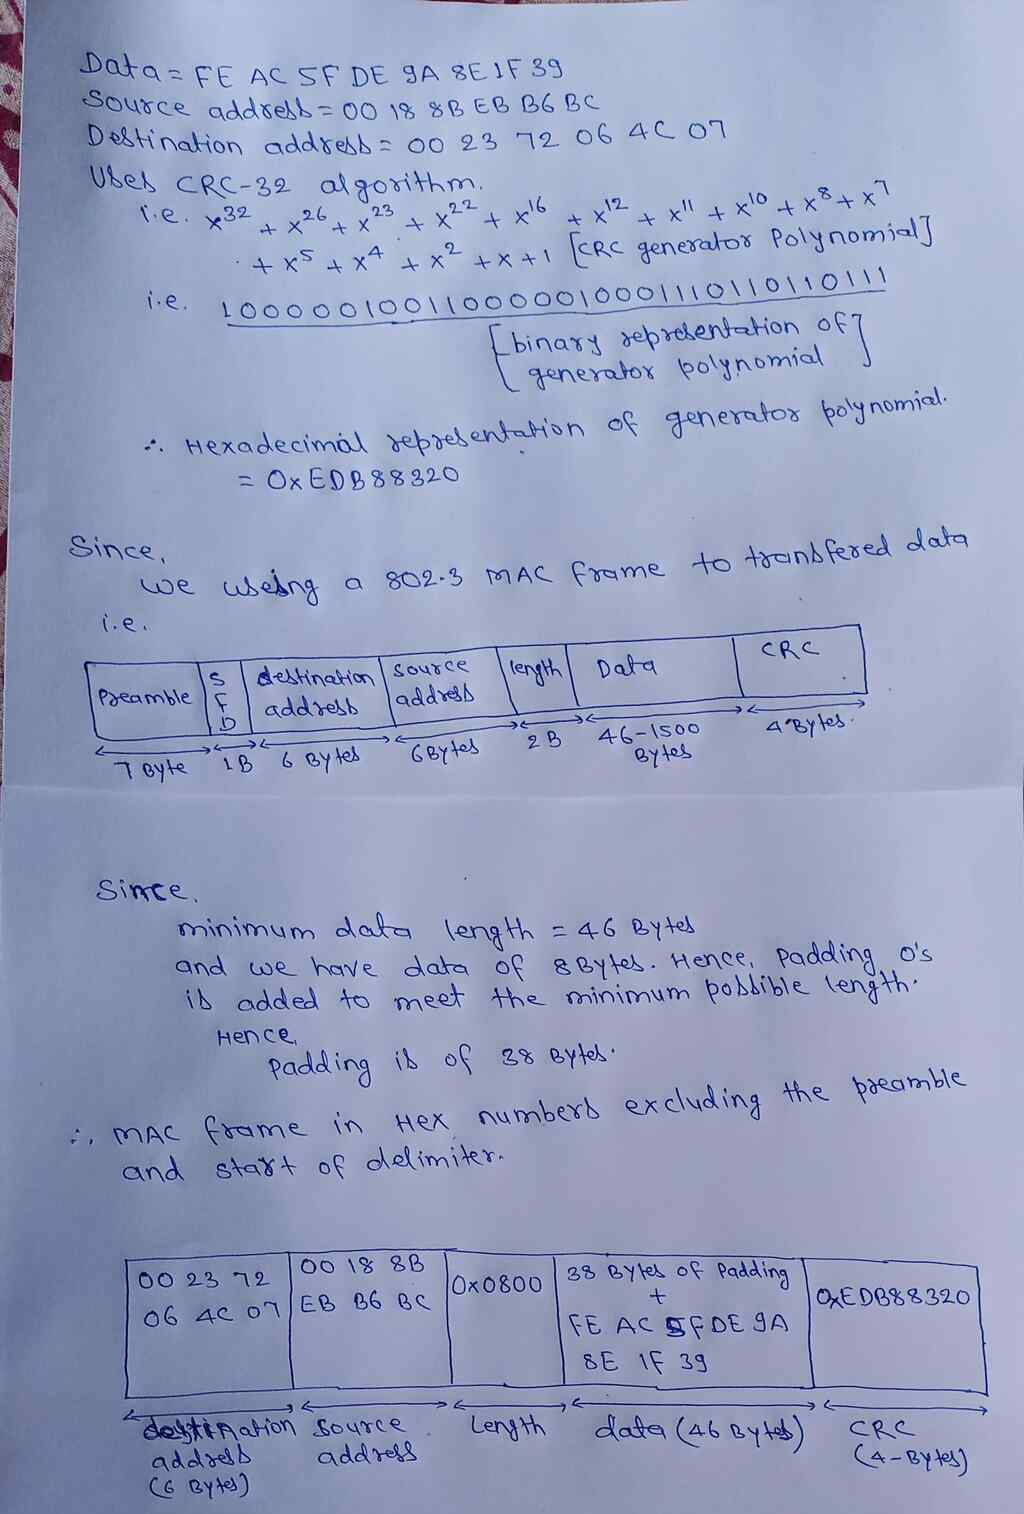 Data = FE AC 5F DE 9A 8E 1F 39
Source address = 00 18 8B EB B6 BC
Destination address = 00 23 72 06 4C 07
Uses CRC-32 algorithm.
i.e. x³² + x²⁶ + x²³ + x²² + x¹⁶ + x¹² + x¹¹ + x¹⁰ + x⁸ + x⁷
+ x⁵ + x⁴ + x² + x + 1 [CRC generator Polynomial]
i.e. 100000100110000010001110110110111
[binary representation of
generator polynomial]
∴ Hexadecimal representation of generator polynomial.
= 0xEDB88320
Since,
we useing a 802.3 MAC frame to transfered data
i.e.
Preamble | SFD | destination address | source address | length | Data | CRC
7 Byte 1B 6 Bytes 6Bytes 2B 46-1500 Bytes 4 Bytes.
Since,
minimum data length = 46 Bytes
and we have data of 8Bytes. Hence, padding 0's
is added to meet the minimum possible length.
Hence,
padding is of 38 Bytes.
∴, MAC frame in Hex numbers excluding the preamble
and start of delimiter.
00 23 72 06 4C 07 | 00 18 8B EB B6 BC | 0x0800 | 38 Bytes of Padding + FE AC 5F DE 9A 8E 1F 39 | 0xEDB88320
destination address (6 Bytes) source address Length data (46 Bytes) CRC (4-Bytes)